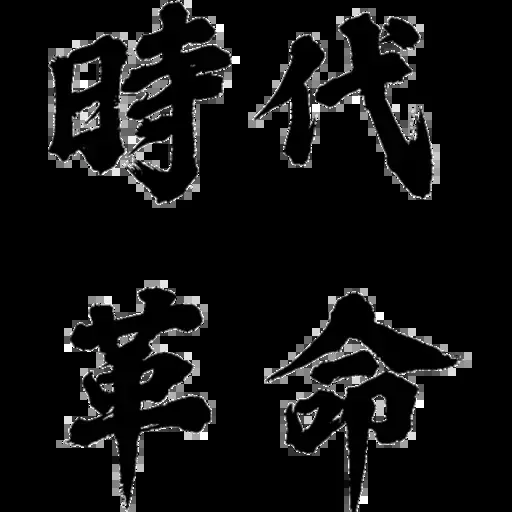 時代
革命